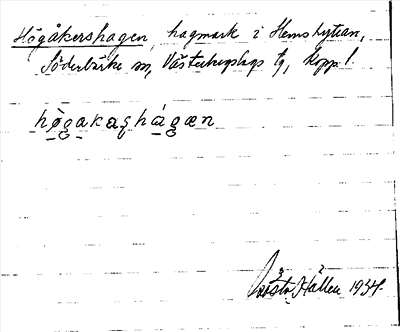 Högåkershagen, hagmark i Hemshyttan,
Söderbärke sn, Västerbergslags tg, Kopp. l.
högakaʂhágæn
Gösta Källén 1934.